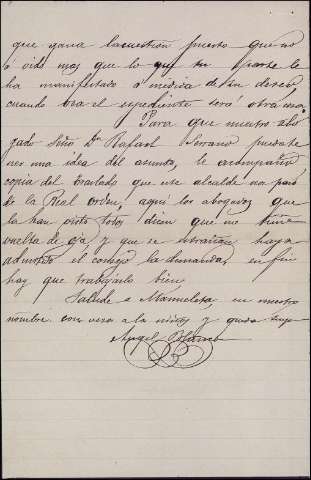 que gana la cuestion puesto que no
ó oido mas que lo que su parte le
ha manifestado á medida de su deseo,
cuando vea el espediente será otra cosa
Para que nuestro abo
gado Señor Dn Rafael Serrano pueda te
ner una idea del asunto, le acompaño
copia del traslado que este alcalde nos pasó
de la Real orden, aqui los abogados que
la han visto todos dicen que no tiene
vuelta de oja y que se estrañan haya
admitido el consejo la demanda, en fin
hay que trabajarlo bien
Salude a Manuela, en nuestro
nombre con
a la
y queda suyo
Angel Blanco